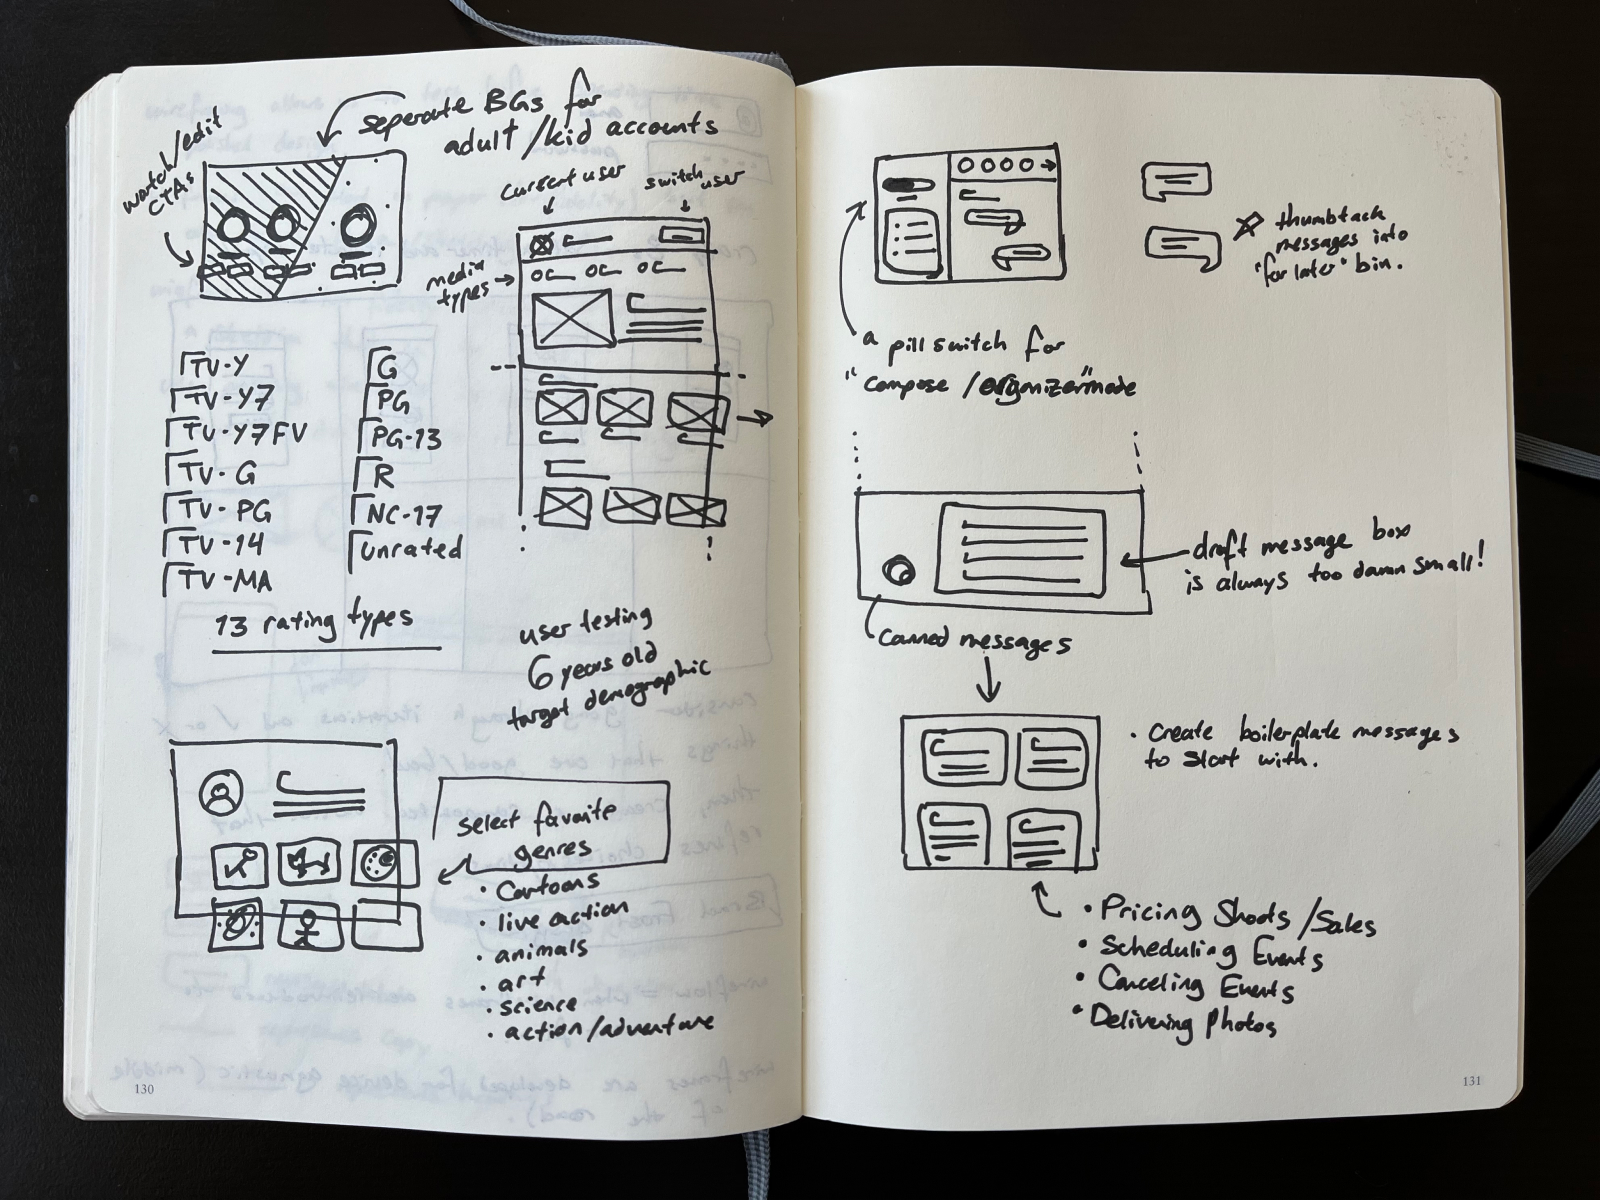 seperate BGs for
adult/kid accounts
watch/edit
CTAs
current user
switch user
media
types
TV-Y
TV-Y7
TV-Y7FV
TV-G
TV-PG
TV-14
TV-MA
G
PG
PG-13
R
NC-17
Unrated
13 rating types
user testing
6 years old
target demographic
select favorite
genres
• Cartoons
• live action
• animals
• art
• science
• action/adventure
130
thumbtack
messages into
"for later" bin.
a pill switch for
"compose/organizer" mode
draft message box
is always too damn small!
Canned messages
• Create boilerplate messages
to start with.
• Pricing Shoots/Sales
• Scheduling Events
• Canceling Events
• Delivering Photos
131